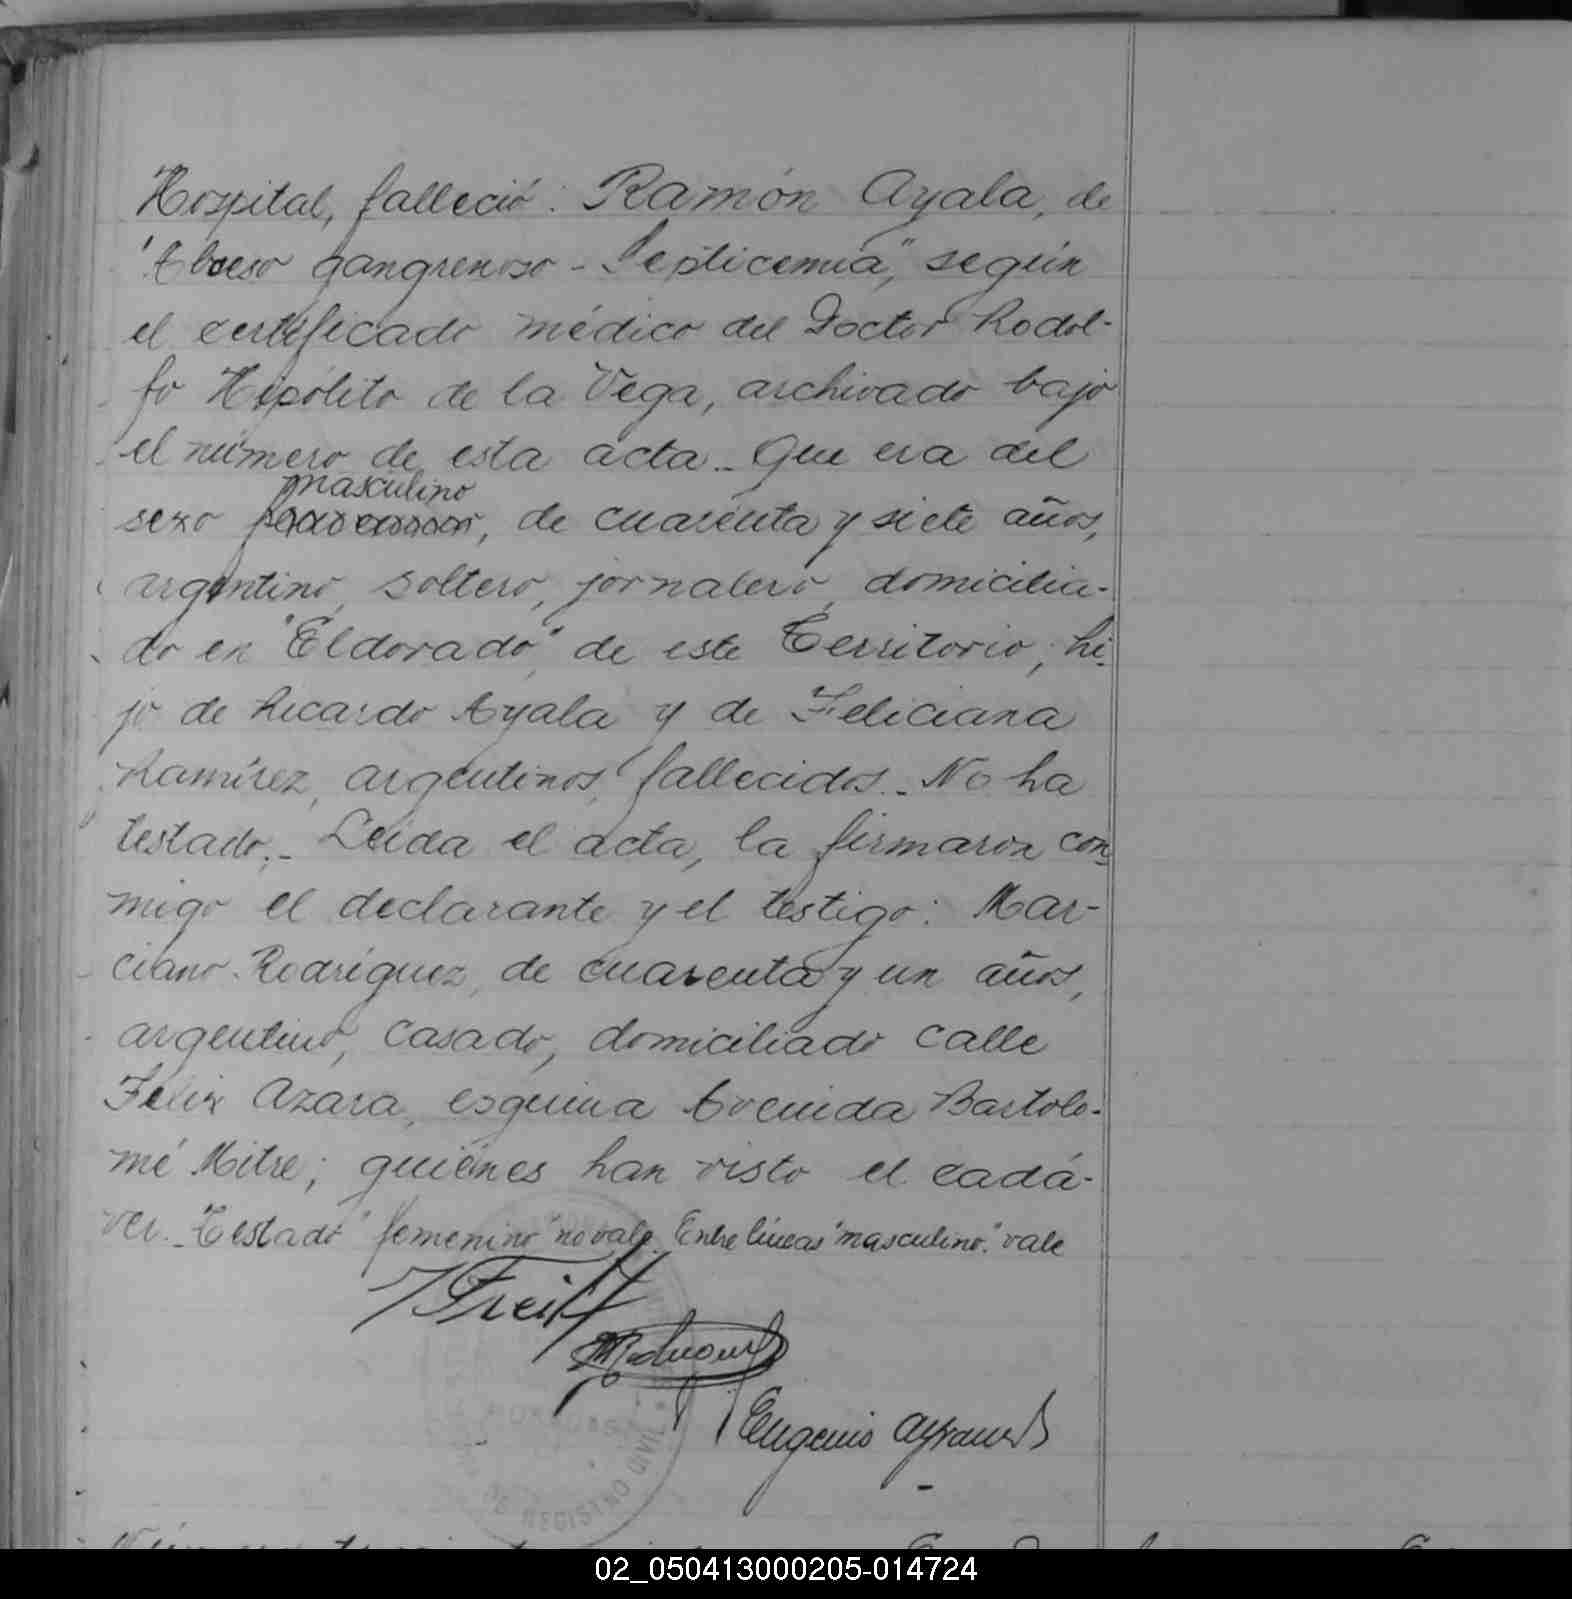 Hospital, falleció: Ramón Ayala, de
"Abceso gangrenoso - Septicemia", según
el certificado médico del Doctor Rodol-
fo Hipólito de la Vega, archivado bajo
el número de esta acta.- Que era del
masculino
sexo, de cuarenta y siete años,
argentino, soltero, jornalero, domicilia-
do en "Eldorado" de este Territorio; hi-
jo de Ricardo Ayala y de Feliciana
Ramírez, argentinos, fallecidos.- No ha
testado.- Leída el acta, la firmaron con-
migo el declarante y el testigo: Mar-
ciano Rodríguez, de cuarenta y un años,
argentino, casado, domiciliado calle
Felix Azara, esquina Avenida Bartolo-
mé Mitre; quiénes han visto el cadá-
ver.- Testado "femenino" no vale. Entre líneas "masculino": vale
Eugenio
DE REGISTRO CIVIL
02_050413000205-014724